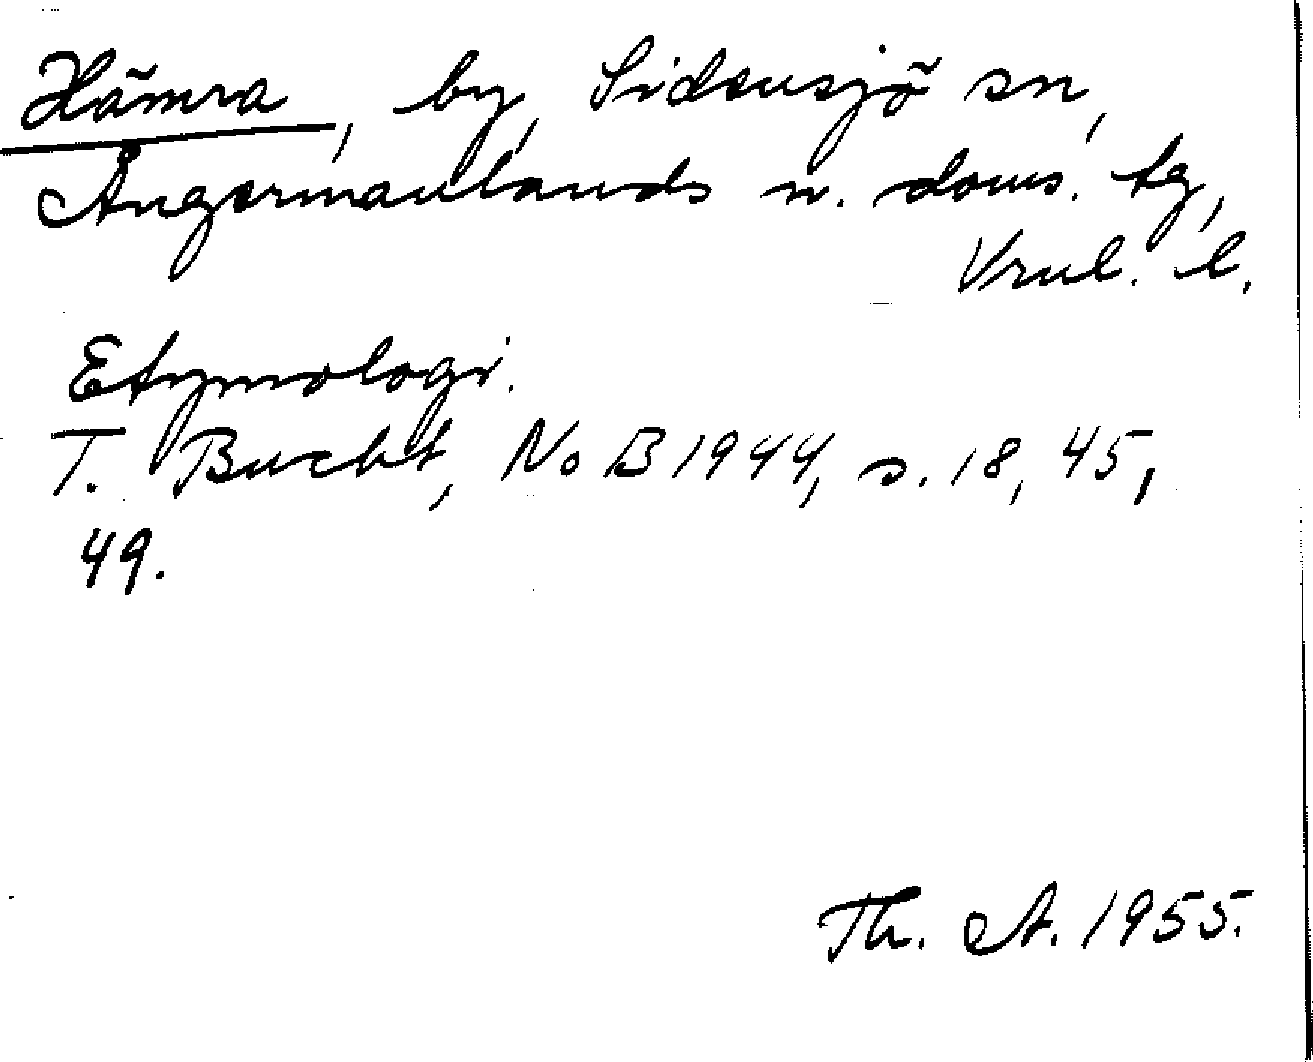 Hämra, by, Sidensjö sn,
Ångermanlands n. doms. tg,
Vrnl. l.
Etymologi.
T. Bucht, NoB 1944, s. 18, 45,
49.
Th. A. 1955.